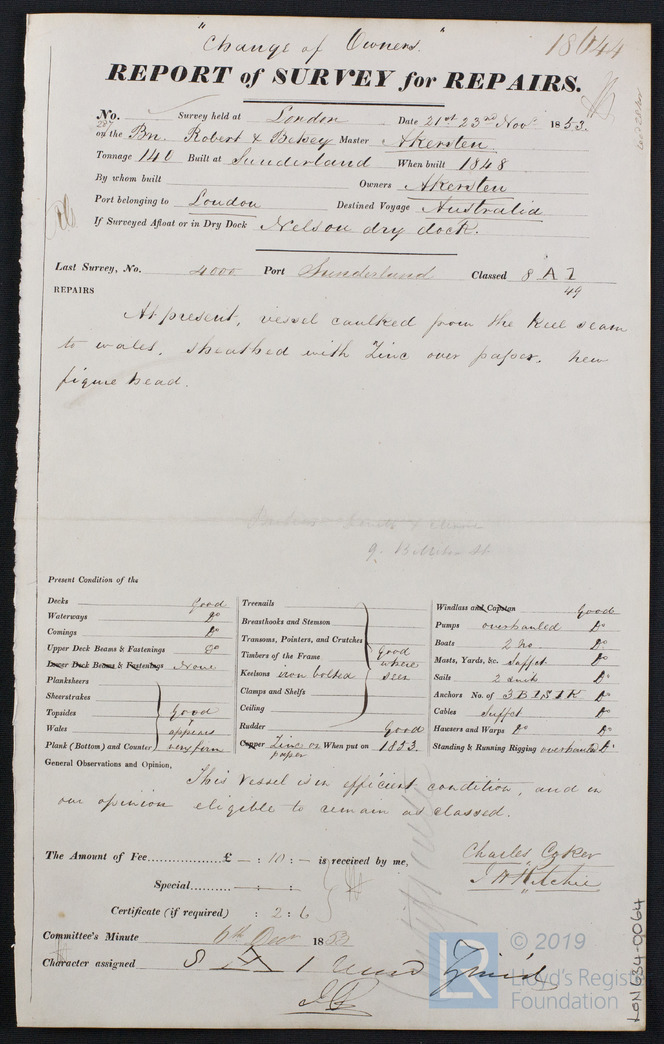 "Change of Owners." 18644
REPORT of SURVEY for REPAIRS.
No. 297 Survey held at London Date 21st 23rd Novr 1853.
on the Bn. Robert & Betsey Master Akersten
Tonnage 140 Built at Sunderland When built 1848
By whom built Owners Akersten
Port belonging to London Destined Voyage Australia
If Surveyed Afloat or in Dry Dock Nelson dry dock.
Last Survey, No. 4000 Port Sunderland Classed 8 A 1
49
REPAIRS
At present, vessel caulked from the Keel seam
to wales, sheathed with Zinc over paper. new
figure head.
9. Billiter St
Present Condition of the
Decks Good
Waterways Do
Comings Do
Upper Deck Beams & Fastenings Do
Lower Deck Beams & Fastenings None
Planksheers
Sheerstrakes
Topsides Good
Wales appears
Plank (Bottom) and Counter very firm
Treenails
Breasthooks and Stemson
Transoms, Pointers, and Crutches
Timbers of the Frame Good
where
Keelsons iron bolted seen
Clamps and Shelfs
Ceiling
Rudder Good
Copper Zinc on When put on 1853.
paper
Windlass and Capstan Good
Pumps overhauled Do
Boats 2 No Do
Masts, Yards, &c. Suffct Do
Sails 2 suits Do
Anchors No. of 3B 1S 1K Do
Cables Suffct Do
Hawsers and Warps Do Do
Standing & Running Rigging overhauled Do
General Observations and Opinion,
This Vessel is in efficient condition, and in
our opinion eligible to remain as classed.
The Amount of Fee............... £ – : 10 : – is received by me,
Charles Coker
J H Ritchie
Special.......... – : – :
Certificate (if required) : 2 : 6
Committee's Minute 6th Decr 1853
Character assigned 8 A 1
© 2019
LR Lloyd's Register
Foundation
LON 634-0064